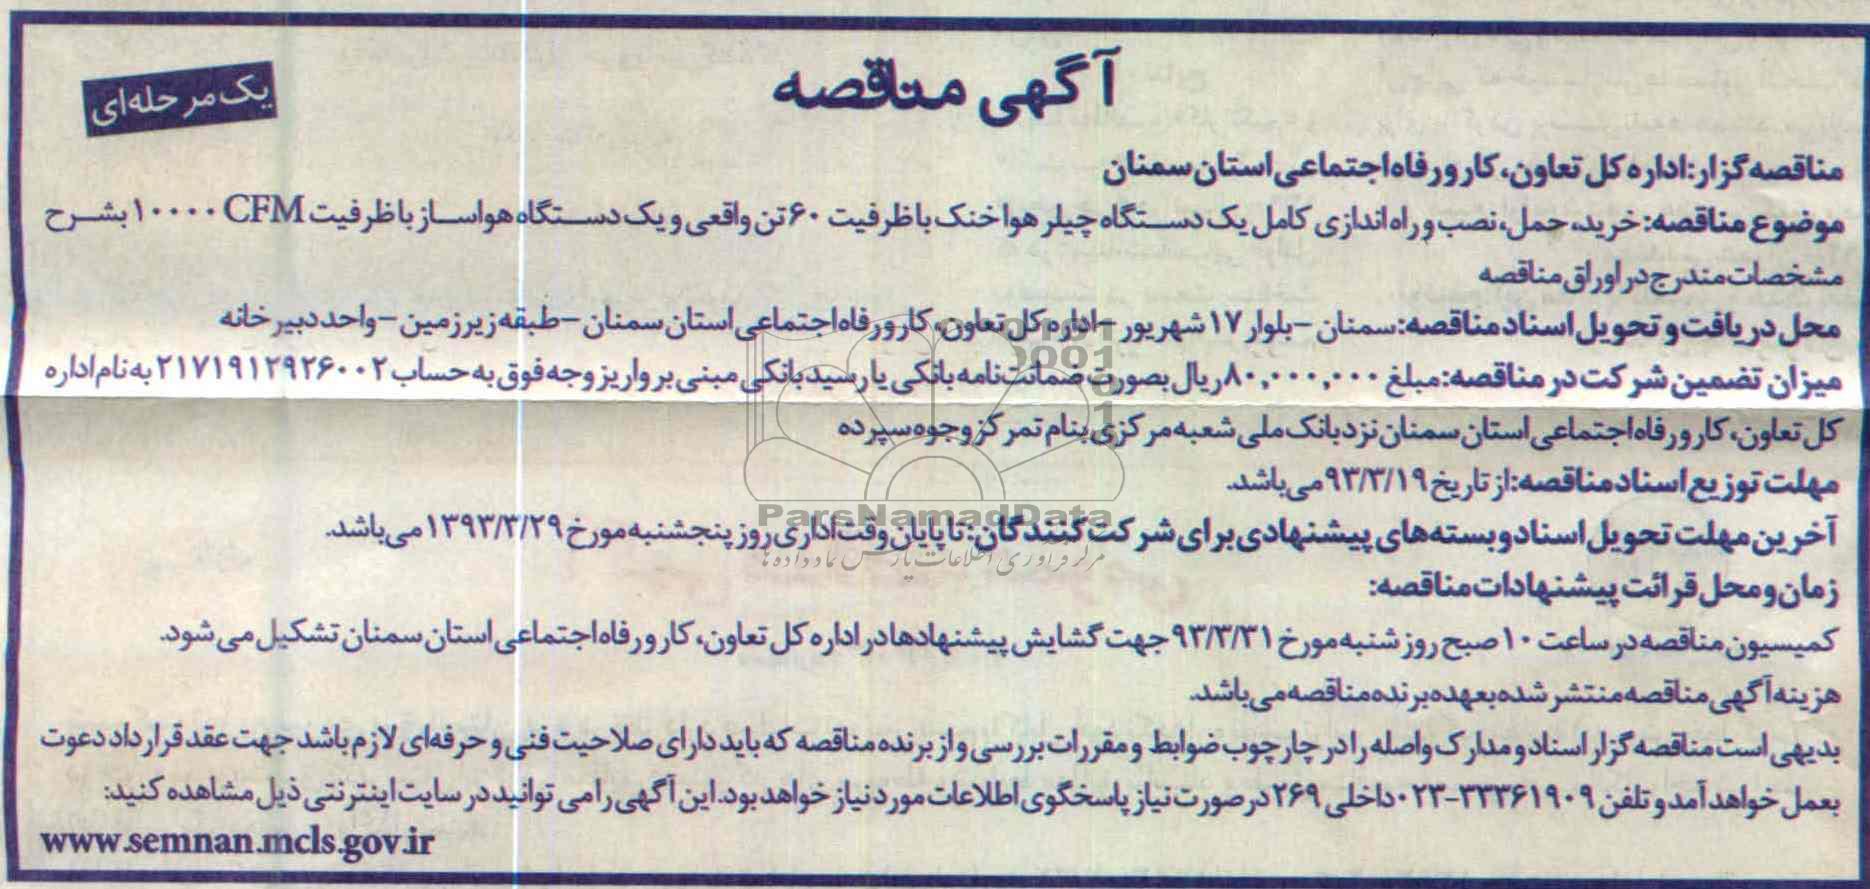 آگهی مناقصه
یک مرحله‌ای
مناقصه گزار: اداره کل تعاون، کار و رفاه اجتماعی استان سمنان
موضوع مناقصه: خرید، حمل، نصب و راه اندازی کامل یک دستگاه چیلر هوا خنک با ظرفیت ۶۰ تن واقعی و یک دستگاه هواساز با ظرفیت ۱۰۰۰۰ CFM بشرح
مشخصات مندرج در اوراق مناقصه
محل دریافت و تحویل اسناد مناقصه: سمنان – بلوار ۱۷ شهریور – اداره کل تعاون، کار و رفاه اجتماعی استان سمنان – طبقه زیرزمین – واحد دبیرخانه
میزان تضمین شرکت در مناقصه: مبلغ ۸۰,۰۰۰,۰۰۰ ریال بصورت ضمانت نامه بانکی یا رسید بانکی مبنی بر واریز وجه فوق به حساب ۲۱۷۱۹۱۲۹۲۶۰۰۲ به نام اداره
کل تعاون، کار و رفاه اجتماعی استان سمنان نزد بانک ملی شعبه مرکزی بنام تمرکز وجوه سپرده
مهلت توزیع اسناد مناقصه: از تاریخ ۹۳/۳/۱۹ می باشد.
ParsNamadData
آخرین مهلت تحویل اسناد و بسته های پیشنهادی برای شرکت کنندگان: تا پایان وقت اداری روز پنجشنبه مورخ ۱۳۹۳/۳/۲۹ می باشد.
مرکز فرآوری اطلاعات پارس نماد داده ها
زمان و محل قرائت پیشنهادات مناقصه:
کمیسیون مناقصه در ساعت ۱۰ صبح روز شنبه مورخ ۹۳/۳/۳۱ جهت گشایش پیشنهادها در اداره کل تعاون، کار و رفاه اجتماعی استان سمنان تشکیل می شود.
هزینه آگهی مناقصه منتشر شده بعهده برنده مناقصه می باشد.
بدیهی است مناقصه گزار اسناد و مدارک واصله را در چارچوب ضوابط و مقررات بررسی و از برنده مناقصه که باید دارای صلاحیت فنی و حرفه ای لازم باشد جهت عقد قرارداد دعوت
بعمل خواهد آمد و تلفن ۳۳۳۶۱۹۰۹-۰۲۳ داخلی ۲۶۹ در صورت نیاز پاسخگوی اطلاعات مورد نیاز خواهد بود. این آگهی را می توانید در سایت اینترنتی ذیل مشاهده کنید:
www.semnan.mcls.gov.ir